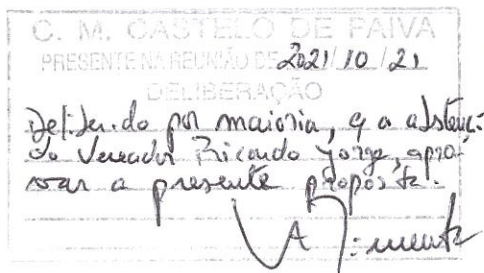 C. M. CASTELO DE PAIVA
PRESENTE NA REUNIÃO DE 2021/10/21
DELIBERAÇÃO
Deliberado por maioria, c/ a abstenç.
do Vereador Ricardo Jorge, apro-
var a presente proposta.